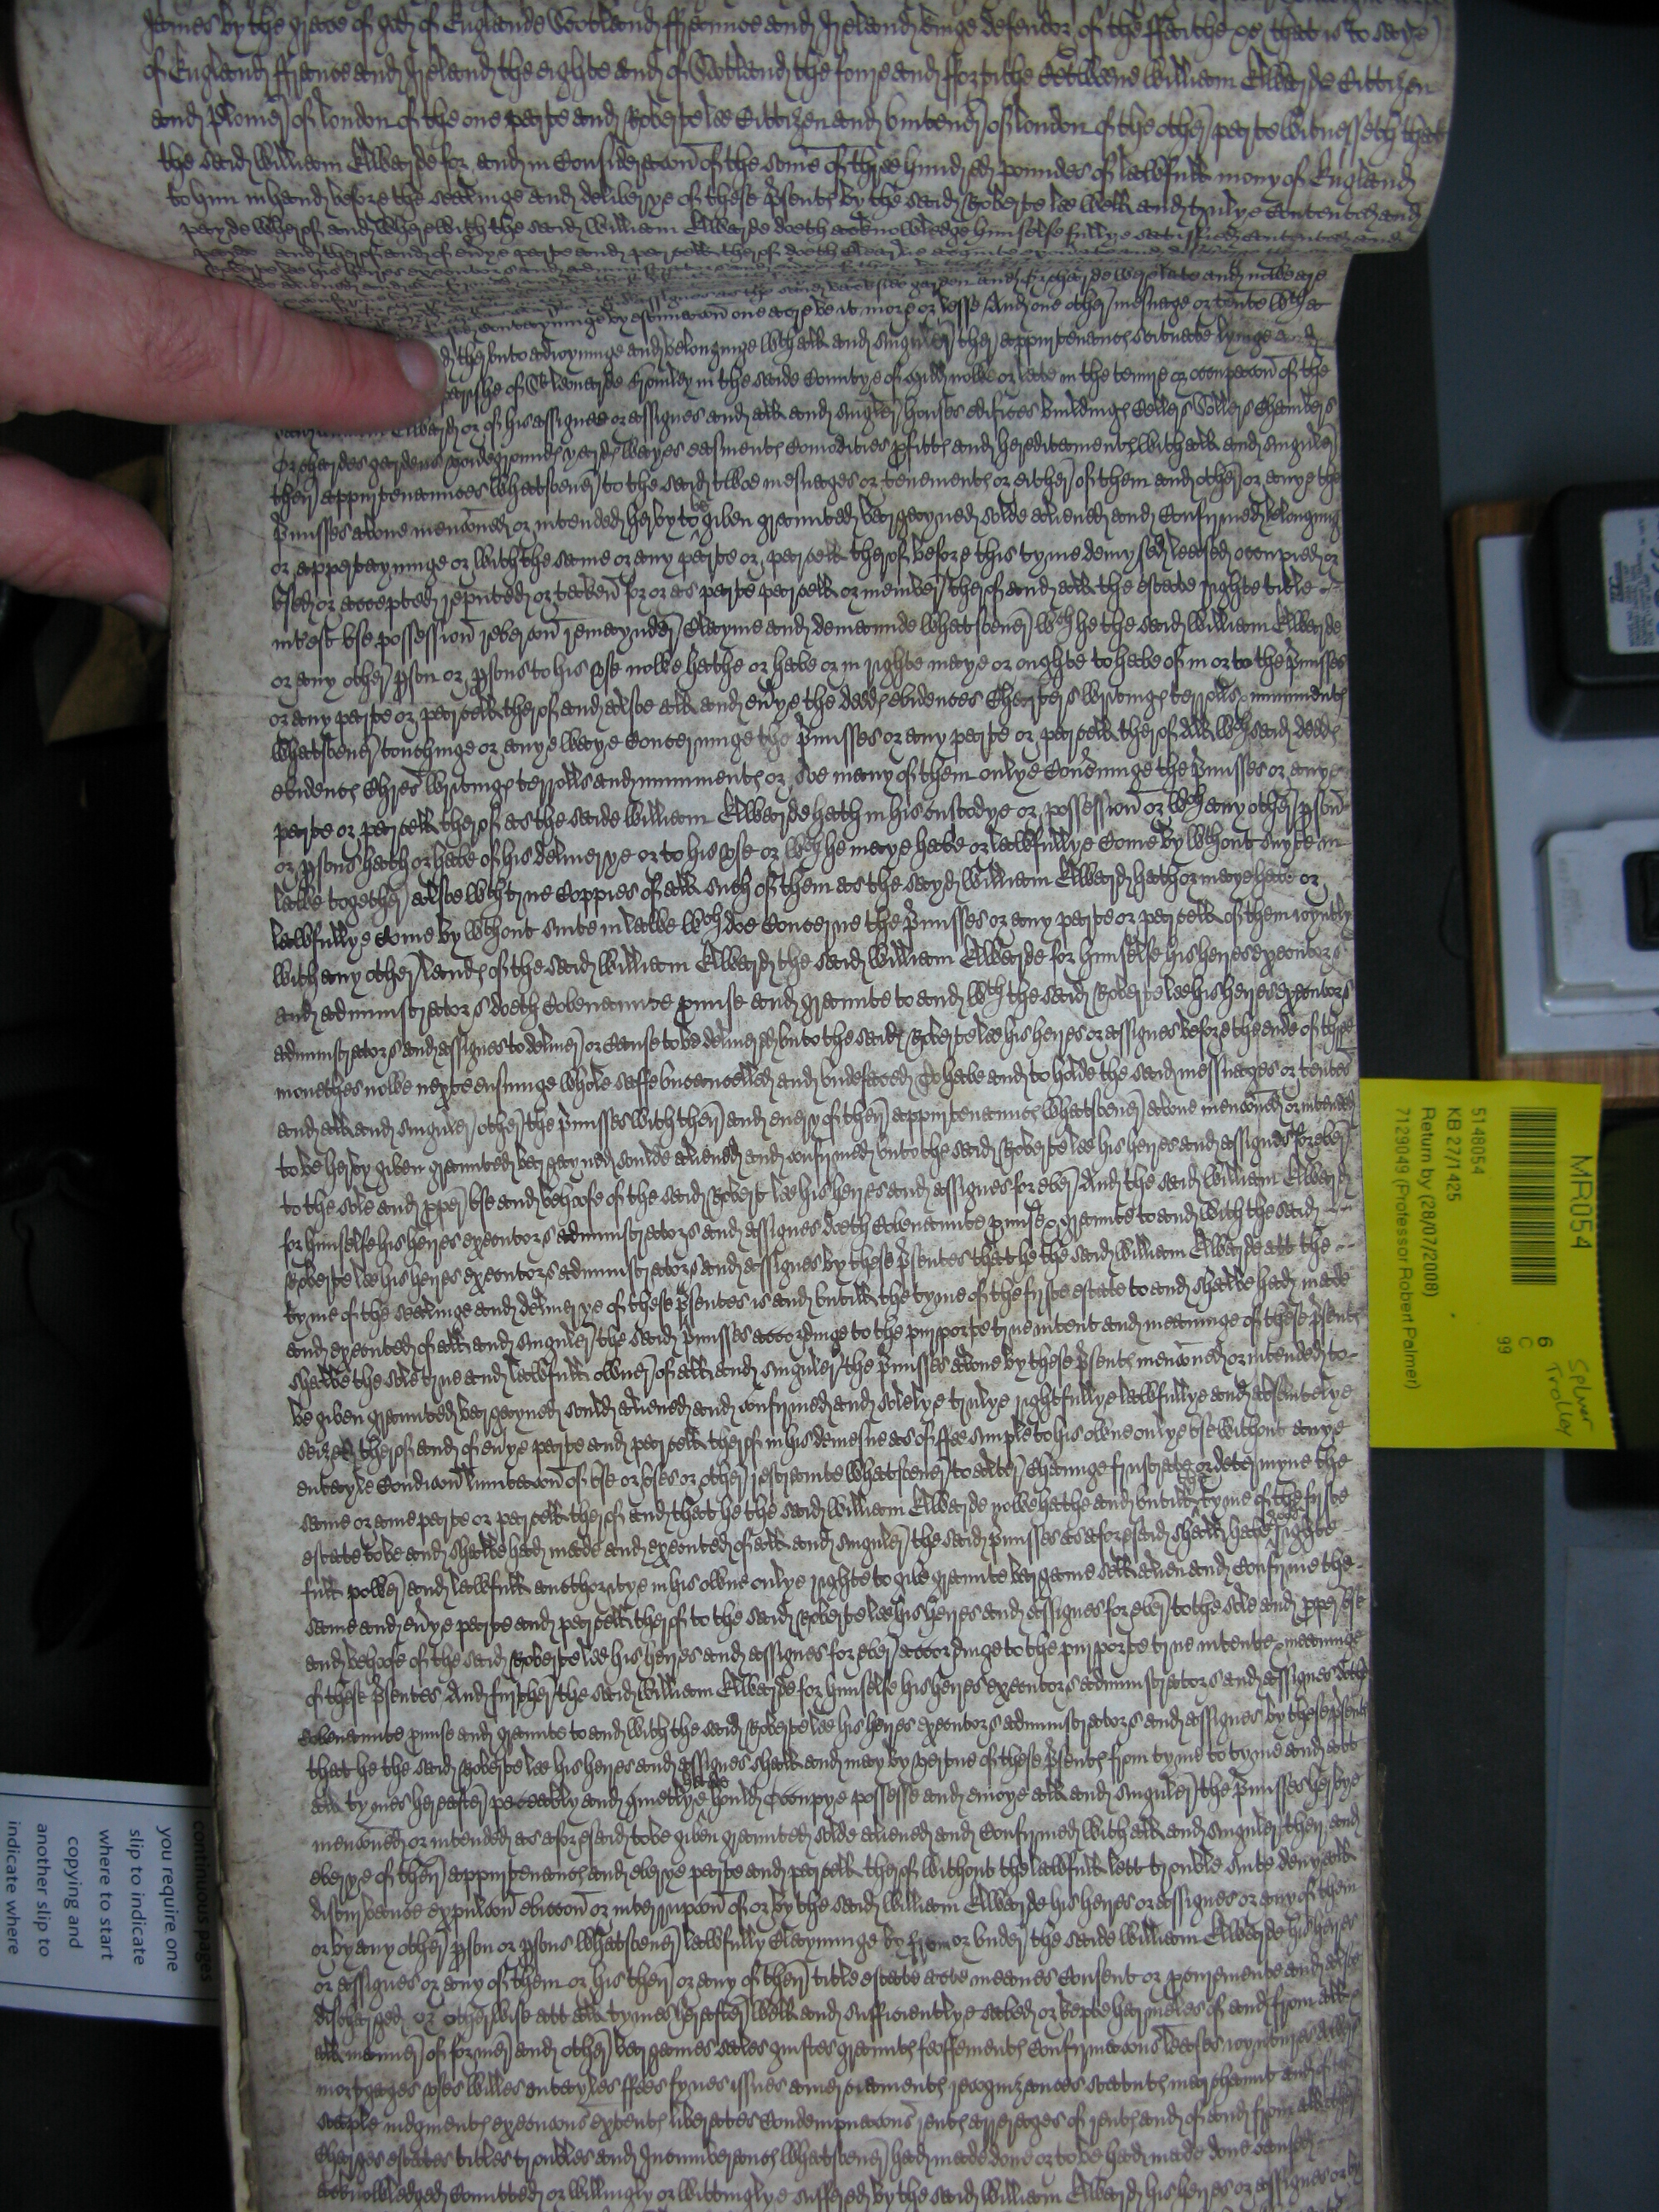 James by the grace of god of Englande Scotland ffraunce and Ireland kinge defendor of the ffaithe &c that is to saye
of England ffraunce and Ireland the eighte and of Scotland the foure and ffortithe Betwene William Elwarde Cittizen
and Plomer of London of the one parte and Roberte lee Cittizen and vintener of London of the other parte witnesseth that
the said William Elwarde for and in Consideracon of the some of three hundred poundes of lawfull mony of England
to him in hand before the sealinge and deliverye of these psents by the said Roberte lee well and trulye Contented and
payde wherof and wherewith the said William Elwarde doeth acknowledge himselfe fullye satisfied contented and
payde and therof and of evrye parte and parcell therof doeth
orchard
conteyninge by estimacon one acre be it more or lesse And one other mesuage or tente wth
therunto adioyninge and belonginge wth all and singuler ther appurtenancs scituate lyinge and
parishe of St leonarde Bromley in the saide Countye of Midd nowe or late in the tenure or occupacon of the
said William Elward or of his assignee or assignes and all and singler houses edifices buildings Cellers Sollers Chambers
Orchardes gardens voidegrounds yards wayes easments Comodities pfitts and hereditaments with all and singuler
ther appurtenaunces whatsoever to the said twoe mesuages or tenements or either of them and other or anye the
pmisses above menconed or intended herby to be given graunted bargayned solde aliened and Confirmed belonging
or appertayninge or with the same or any parte or parcell therof before this tyme demysed leased occupied or
used or accepted reputed or taken for or as parte parcell or member therof and all the estate righte title
intrest use possession revercon remaynder Clayme and demaunde whatsoever wch he the said William Elwarde
or any other pson or psons to his use nowe hathe or have or in righte maye or oughte to have of in or to the pmisses
or any parte or parcell therof and alsoe all and evrye the deeds evidences Charters writings terrors & muniments
whatsoever touchinge or anye waye Concerninge the pmisses or any parte or parcell therof All wch said deeds
evidencs Chres writings terrolls and muniments or soe many of them onlye Concerninge the pmisses or anye
parte or parcell therof as the saide William Elwarde hath in his custodye or possession or wch any other pson
or psons hath or have of his deliverye or to his use or wch he maye have or lawfullye Come by wthout suyte in
lawe together alsoe wth true Coppies of all such of them as the sayd William Elward hath or maye have or
lawfullye Come by wthout suite in lawe wch doe Concerne the pmisses or any parte or parcell of them ioyntly
with any other lands of the said William Elward the said William Elwarde for himselfe his heyres executors
and administrators doeth Covenaunte pmise and graunte to and wth the said Roberte lee his heyres executors
administrators and assignes to deliver or cause to be delivered unto the said Roberte lee his heyres or assignes before the ende of three
monethes nowe nexte ensuinge whole saffe uncancelled and undefaced To have and to holde the said messuages or tentes
and all and singuler other the pmisses with ther and every of ther appurtenauncs whatsoever above menconed or intended
to be herby given graunted bargayned soulde aliened and confirmed unto the said Roberte lee his heyres and assignes forever
to the sole and pper use and behoofe of the said Robert lee his heyres and assignes for ever And the said William Elward
for himselfe his heyres executors administrators and assignes doeth Covenaunte pmise & graunte to and with the said
Roberte lee his heyres executors administrators and assignes by these psentes that he the said William Elwarde att the
tyme of the sealinge and deliverye of these psentes is and untill the tyme of the firste estate to and shalbe had made
and executed of all and singuler the said pmisses accordinge to the purporte true intent and meaninge of these psents
shalbe the sole true and lawfull owner of all and singuler the pmisses above by these psents menconed or intended to
be given graunted bargayned sould aliened and confirmed and solelye trulye rightfullye lawfullye and absolutelye
seized therof and of evrye parte and parcell therof in his demesne as of ffee simple to his owne onlye use without anye
entayle Condicon limitacon of use or uses or other restrainte whatsoever to alter Chaunge frustrate or determyne the
same or anie parte or parcell therof and that he the said William Elwarde nowe hathe and untill the tyme of the firste
estate to be and shalbe had made and executed of all and singuler the said pmisses as aforesaid shall have good righte
full power and lawfull aucthoritye in his owne onlye righte to give graunte bargaine sell alien and Confirme the
same and evrye parte and parcell therof to the said Roberte lee his heyres and assignes for ever to the sole and pper use
and behoofe of the said Roberte lee his heyres and assignes for ever accordinge to the purporte true intente & meaninge
of these psentes And further the said William Elwarde for himselfe his heyres executors administrators and assignes doth
Covenaunte pmise and graunte to and with the said Roberte lee his heyres executors administrators and assignes by these psents
that he the said Roberte lee his heyres and assignes shall and may by vertue of these psents from tyme to tyme and att
all tymes hereafter peaceably and quietlye have hould Occupye possesse and enioye all and singuler the pmisses herbye
menconed or intended as aforesaid to be given graunted solde aliened and Confirmed with all and singuler ther and
everye of ther appurtenancs and everye parte and parcell therof without the lawfull lett trouble suite denyall
disturbance expulcon eviccon or interrupcon of or by the said William Elwarde his heyres or assignes or any of them
or by any other pson or psons whatsoever lawfully Clayminge by from or under the saide William Elwarde his heyres
or assignes or any of them or his ther or any of ther title estate acte meanes Consent or procurement and alsoe
discharged or otherwise att all tymes herafter well and sufficientlye saved or kepte harmeles of and from all
all manner of former and other bargaines sales guiftes graunts feoffements Confirmacons leases ioyntures dowers
mortgages uses willes entayles ffees fynes issues amerciaments recognizances statuts marchaunt and of the
staple iudgments execucons extents liberates Condempnacons rents arrerages of rents and of and from all other
Charges estates titles troubles and Incumberancs whatsoever had made done or to be had made done caused
acknowledged Comitted or willingly or wittinglye suffered by the said William Elward his heyres or assignes or by
MR054
5148054
KB 27/1425
Return by (28/07/2008)
7129049 (Professor Robert Palmer)
6
C
99
Silver
Trolley
continuous pages
you require one
slip to indicate
where to start
copying and
another slip to
indicate where